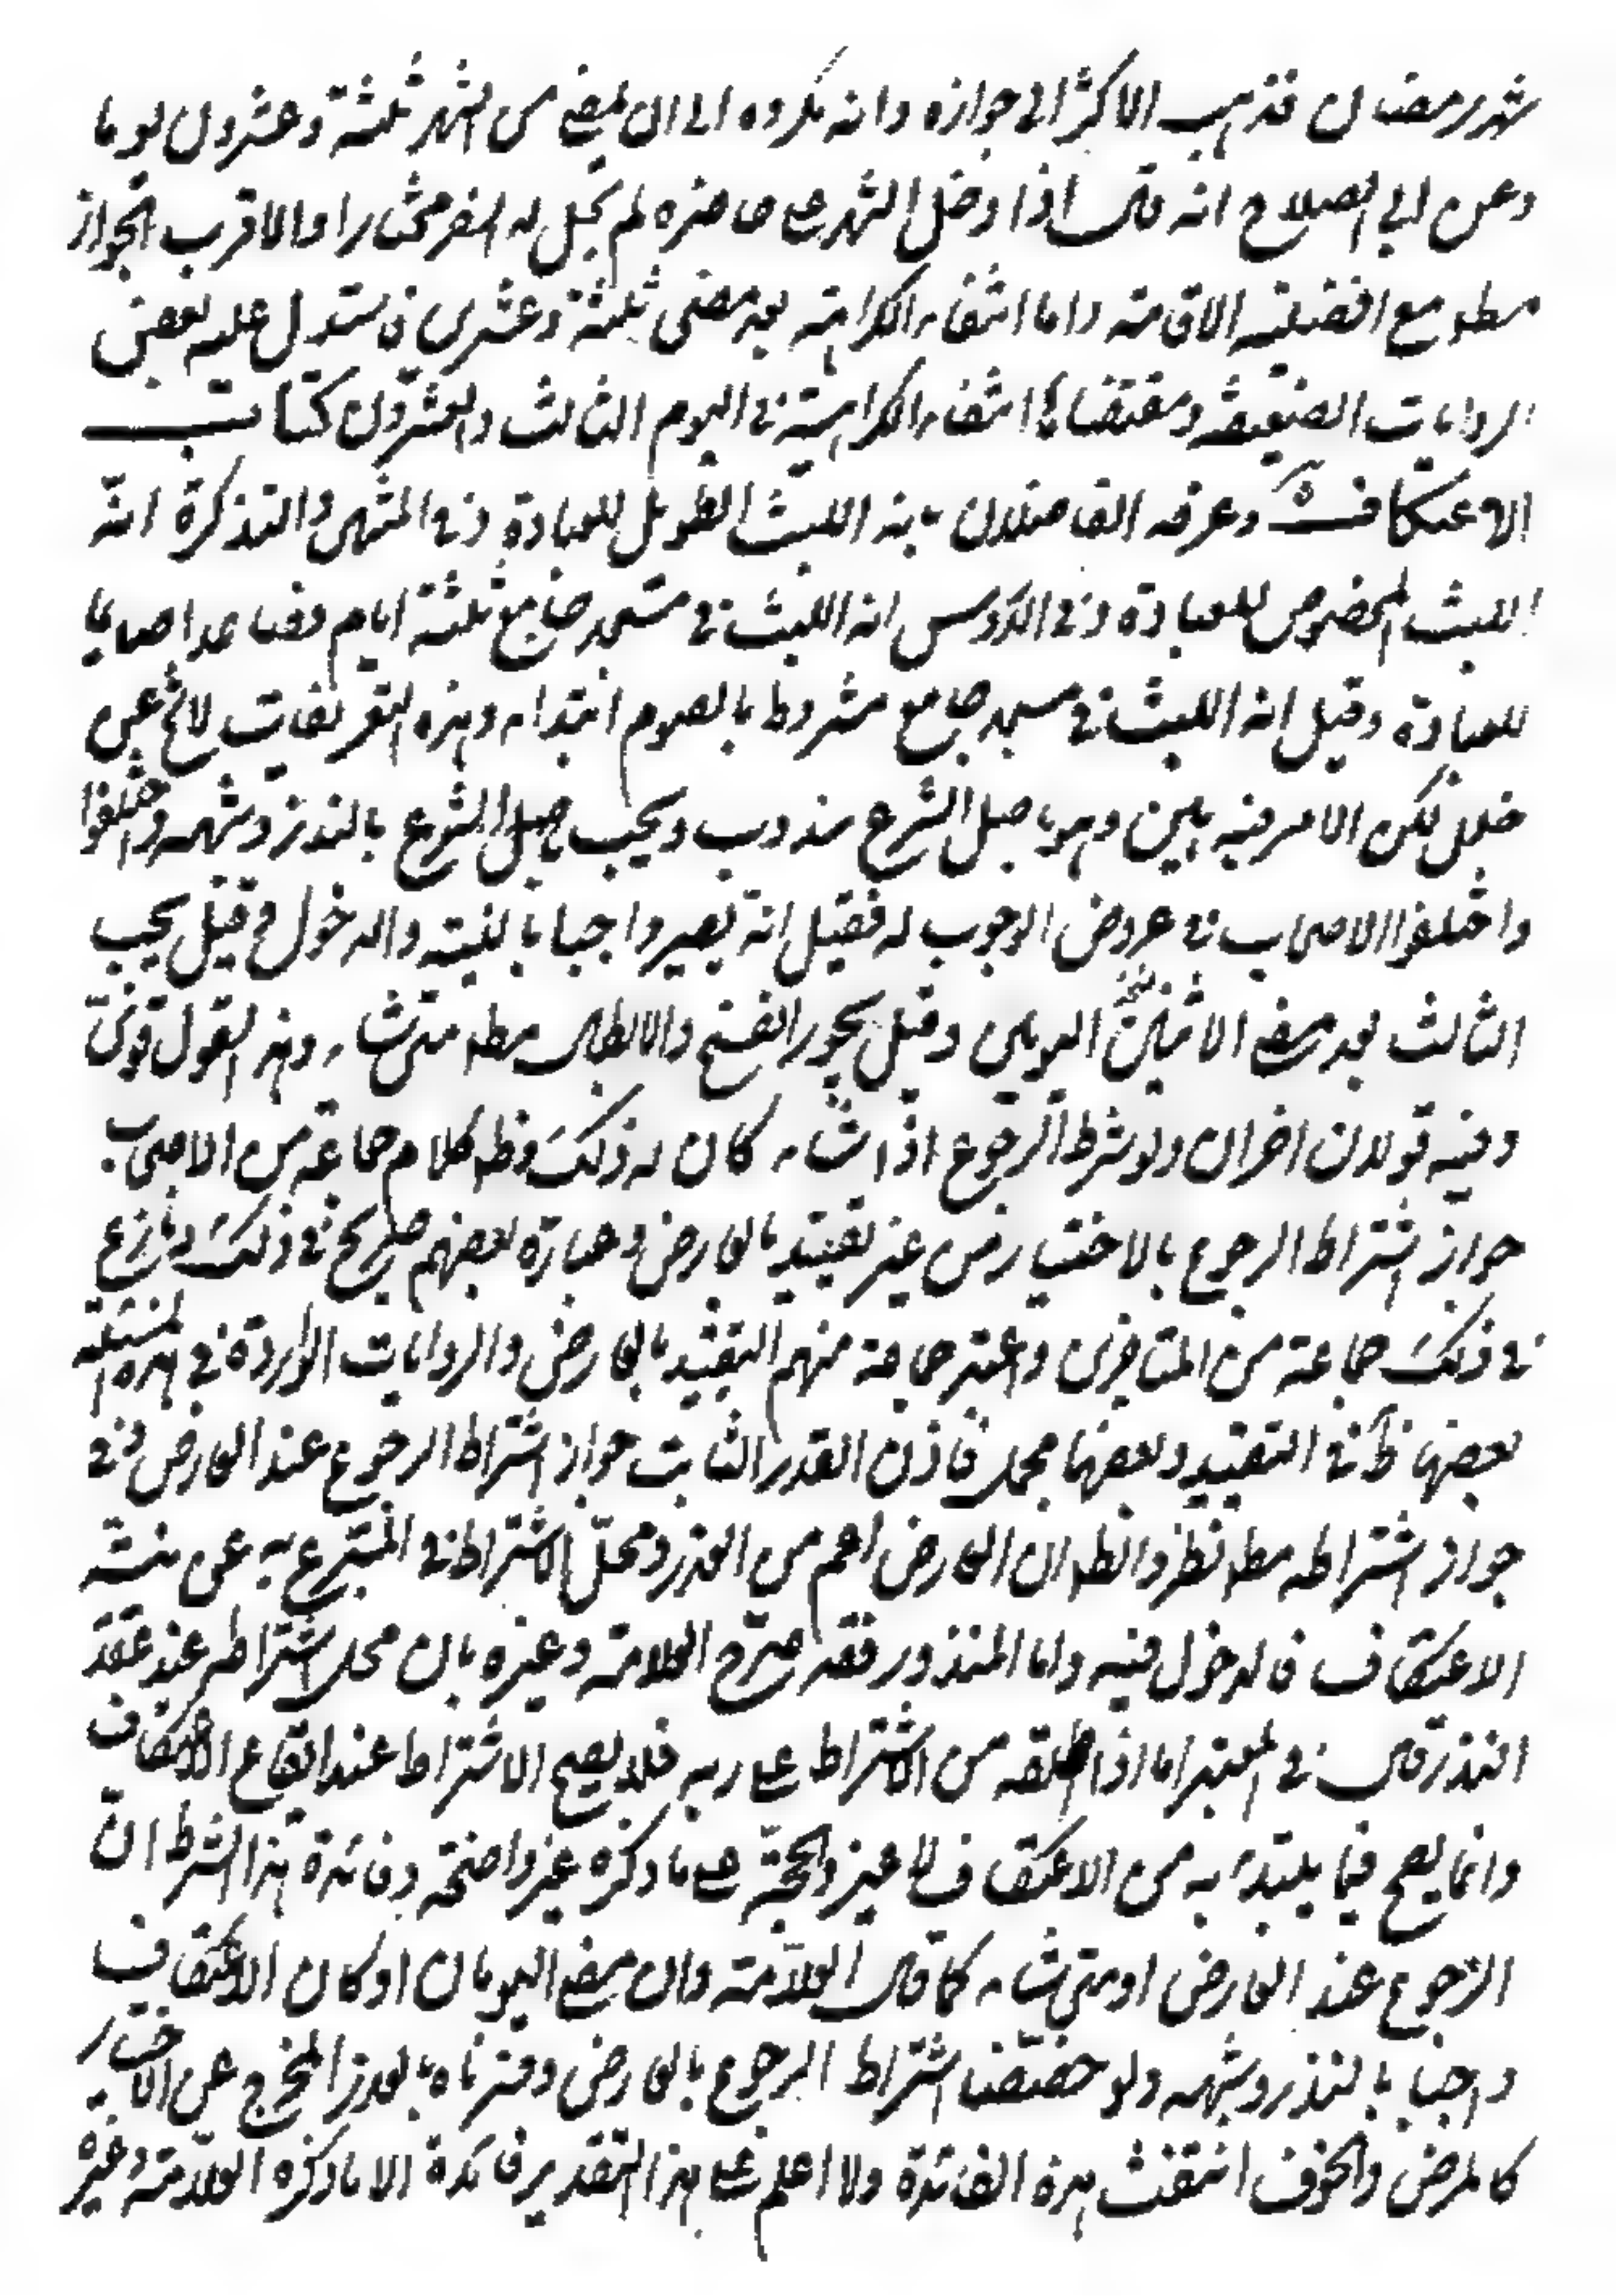 شهر رمضان فذهب الاكثر الى جوازه وانه مكروه الى ان يمضي من الشهر ثلثة وعشرون يوما
وعن ابي الصلاح انه قال اذا دخل الشهر على حاضره لم يحل له السفر مختارا والاقرب الجواز
مطلقا مع افضلية الاقامة واما انتفاء الكراهة بعد مضى ثلثة وعشرين فاستدل عليه ببعض
الروايات الضعيفة ومقتضاها انتفاء الكراهية في اليوم الثالث والعشرون كتاب
الاعتكاف وعرفه الفاضلان بانه اللبث الطويل للعبادة وفي المنتهى والتذكرة انه
اللبث المخصوص للعبادة وفي الدروس انه اللبث في مسجد جامع ثلثة ايام فصاعدا صايما
للعبادة وقيل انه اللبث في مسجد جامع مشروط بالصوم ابتداء وهذه التعريفات لا تخ عن
خلل لكن الامر فيه هين وهو باصل الشرع مندوب ويجب باصل الشرع بالنذر وشبهه واختلفوا
واختلفوا الاصحاب في عروض الوجوب له فقيل انه يصير واجبا بالنية والدخول وقيل يجب
الثالث بعد مضي الاثنين اليومين وقيل يجوز الفسخ والابطال مطلقا متى شاء وهذا القول قوي
وفيه قولان اخران ولو شرط الرجوع اذا شاء كان له ذلك وظاهر كلام جماعة من الاصحاب
جواز اشتراط الرجوع بالاختيار من غير تقييد بالعارض وعبارة بعضهم صريح في ذلك ونازع
في ذلك جماعة من المتاخرين واعتبر جماعة منهم التقييد بالعارض والروايات الواردة في هذه المسئلة
بعضها ظاهر في التقييد وبعضها مجمل فاذن القدر الثابت جواز اشتراط الرجوع عند العارض وفي
جواز اشتراطه مطلقا نظر والظاهر ان العارض اعم من العذر ومحل الاشتراط في المتبرع به عن نية
الاعتكاف فالدخول فيه واما المنذور فقد صرح العلامة وغيره بان محل اشتراطه عند عقد
النذر قال في المعتبر اما اذا اطلقه من الاشتراط على ربه فلا يصح الاشتراط عند ايقاع الاعتكاف
وانما يصح فيما يبتدء به من الاعتكاف لا غير والحجة على ما ذكره غير واضحة وفائدة هذا الشرط ان
الرجوع عند العارض او متى شاء كما قال العلامة وان مضى اليومان او كان الاعتكاف
واجبا بالنذر وشبهه ولو خصصنا اشتراط الرجوع بالعارض وفسرناه بالعذر المخرج عن الاختيار
كالمرض والخوف انتفت هذه الفائدة ولا اعلم على هذا التقدير فائدة الا ما ذكره العلامة وغيره